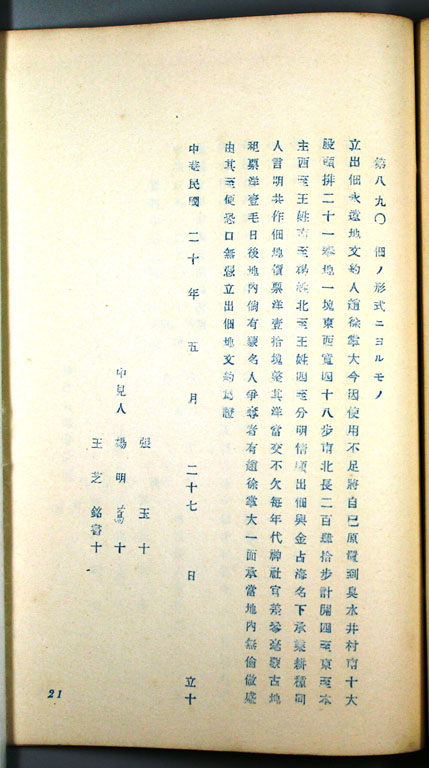 第八九〇 佃ノ形式ニヨルモノ
立出佃永遠地文約人趙徐掌大今因使用不足將自己原置到臭水井村南十大
段頭排二十一地一塊東西寬四十八步南北長二百肆拾步計開四至東至本
主西至王姓南至楊姓北至王姓四至分明情願出佃與金占海名下承耕種同
人言明共作佃地價票洋壹拾塊整其洋當交不欠每年代神社官差毫古地
租票洋壹毛日後地內倘有名人爭奪者有趙徐掌大一面承當地內無偷做
由其至便恐口無憑立出佃地文約為證
中華民國 二十年 五月 二十七 日 立十
張玉十
中見人 楊明十
王芝銘書十
21